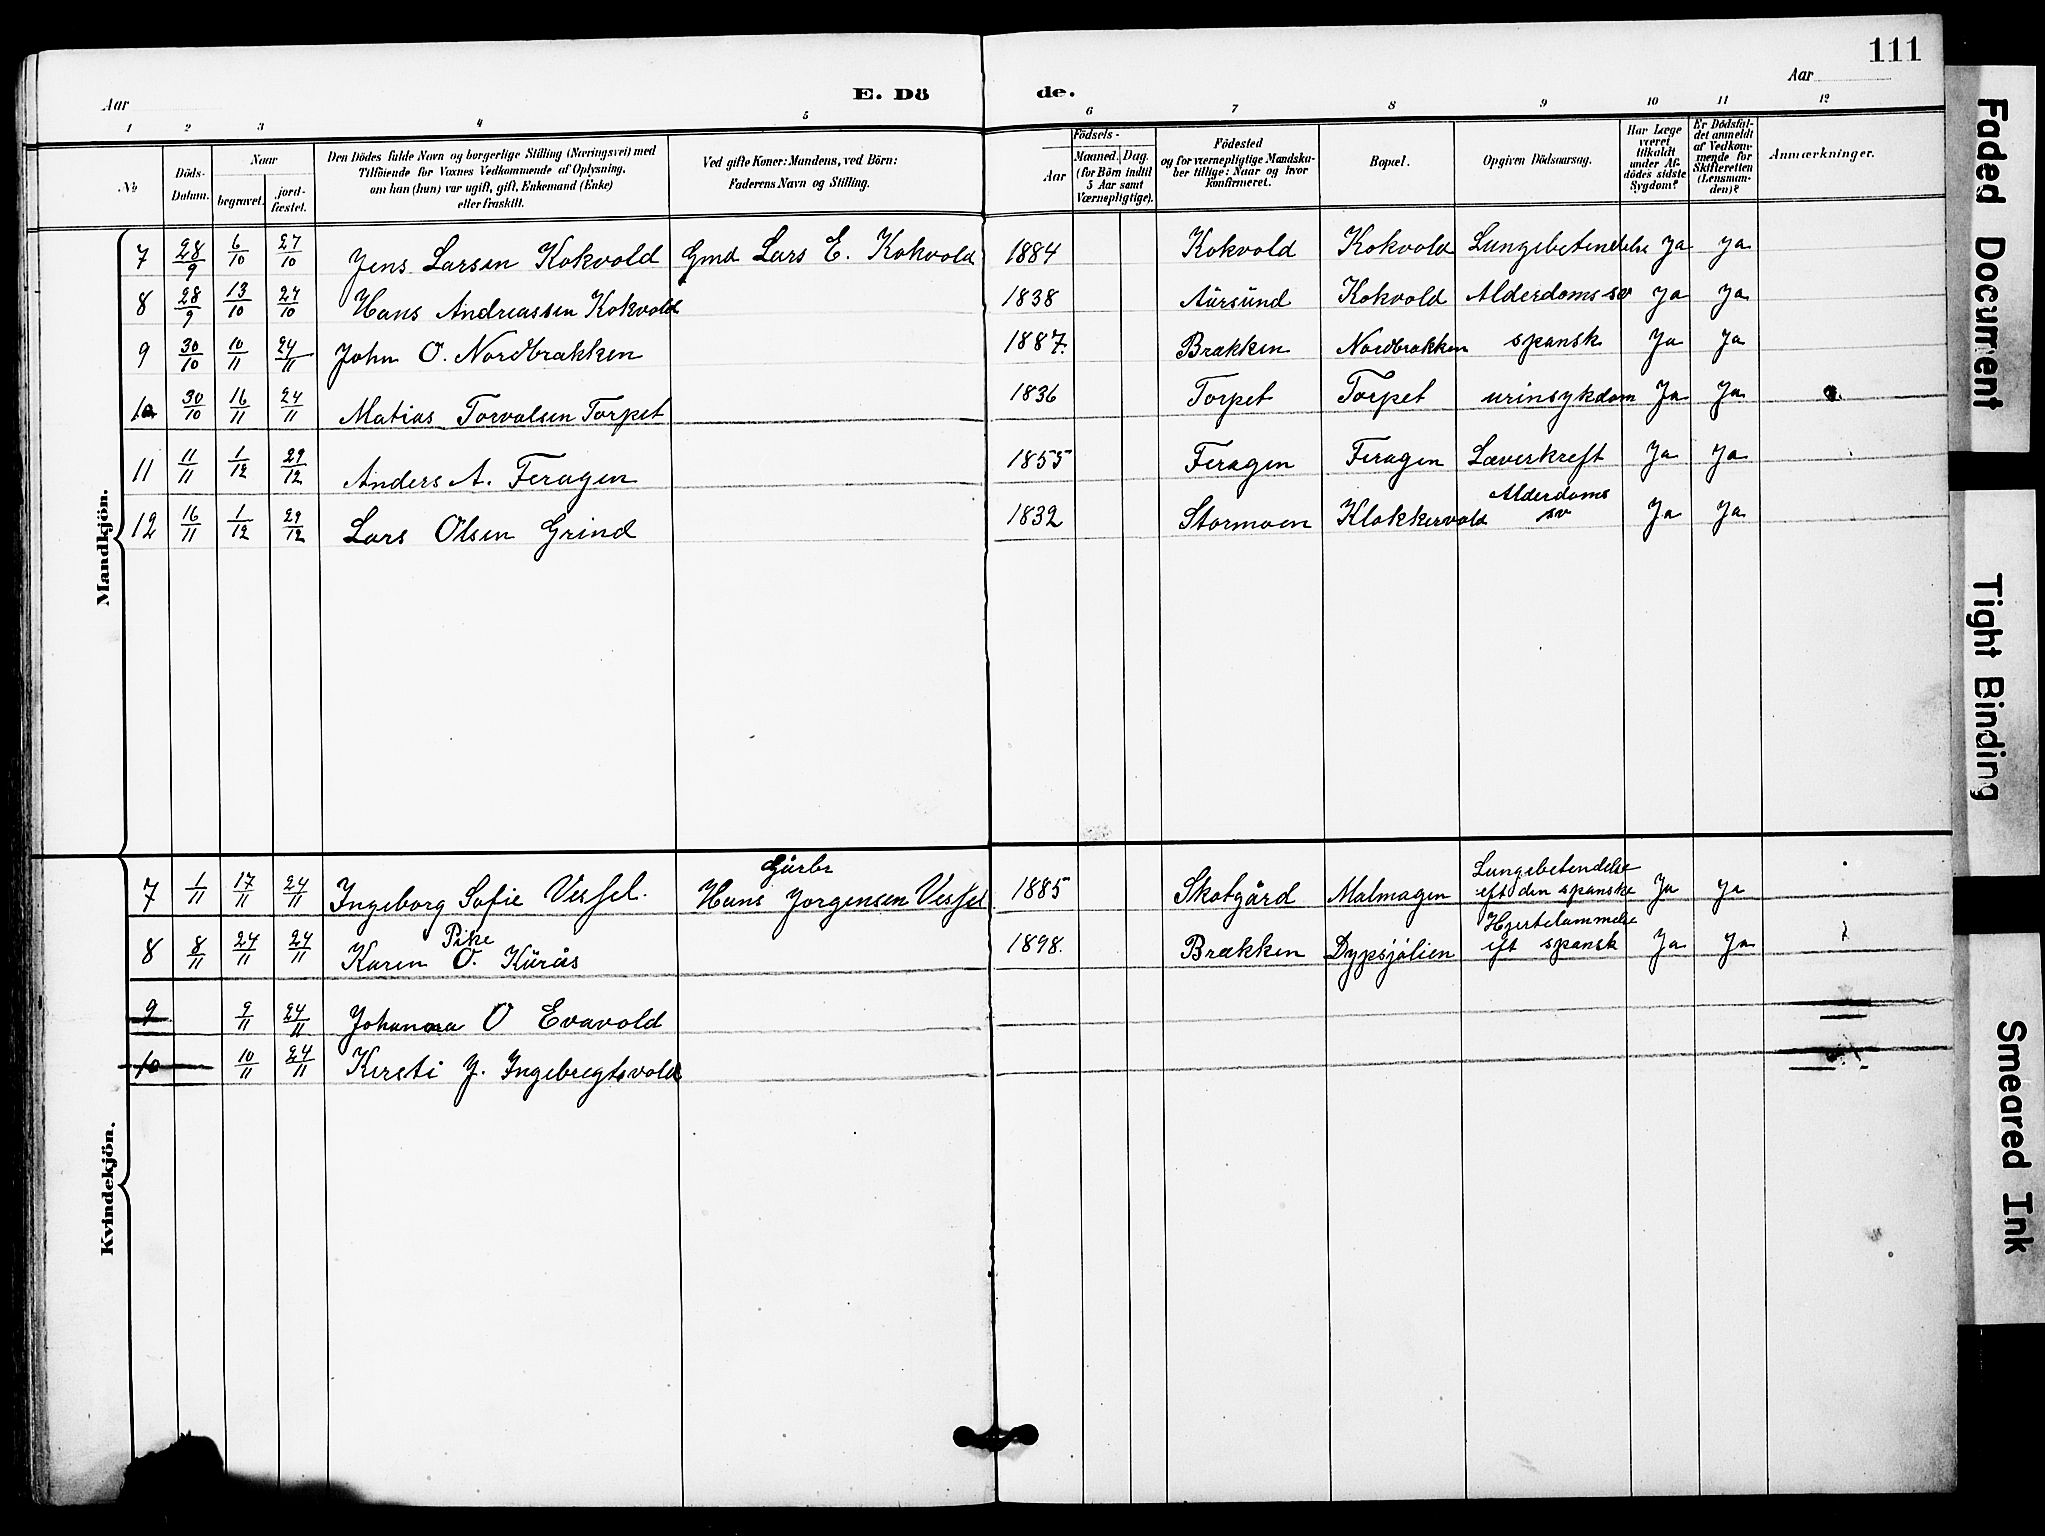 111
Aar
E. Dö
de.
Aar
1 2 3 4 5 6 7 8 9 10 11 12
No
Döds-
Datum.
Naar
begravet.
jord-
fæstet.
Den Dödes fulde Navn og borgerlige Stilling (Næringsvei) med
Tilföiende for Voxnes Vedkommende af Oplysning,
om han (hun) var ugift, gift, Enkemand (Enke)
eller fraskilt.
Ved gifte Koner: Mandens, ved Börn:
Faderens Navn og Stilling.
Födsels-
Aar
Maaned. Dag.
(for Börn indtil
5 Aar samt
Værnepligtige).
Födested
og for værnepligtige Mandska-
ber tillige: Naar og hvor
konfirmeret.
Bopæl.
Opgiven Dödsaarsag.
Har Læge
været
tilkaldt
under Af-
dödes sidste
Sygdom?
Er Dödsfal-
det anmeldt
af Vedkom-
mende for
Skifteretten
(Lensman-
den)?
Anmærkninger.
Mandkjön.
7 28/9 6/10 27/10 Jens Larsen Kokvold Gmd Lars E. Kokvold 1884 Kokvold Kokvold Lungebetendelse Ja Ja
8 28/9 13/10 27/10 Hans Andreassen Kokvold 1838 Aürsünd Kokvold Alderdoms sv Ja Ja
9 30/10 10/11 24/11 John O. Nordbrækken 1887. Brækken Nordbrækken spansk Ja Ja
10 30/10 16/11 24/11 Matias Torvalsen Torpet 1836 Torpet Torpet urinsykdom Ja Ja
11 11/11 1/12 29/12 Anders A. Feragen 1855 Feragen Feragen Læverkreft Ja Ja
12 16/11 1/12 29/12 Lars Olsen Grind 1832 Stormoen Klokkervold Alderdoms
sv Ja Ja
Kvindekjön.
7 1/11 17/11 24/11 Ingeborg Sofie Vessel. Gürbr
Hans Jorgensen Vessel 1885 Skotgård Malmagen Lungebetendelse
eft den spanske Ja Ja
8 8/11 24/11 24/11 Pike
Karen O. Küraås 1898. Brækken Dypsjølien Hjertelammelse
eft spansk Ja Ja
9 9/11 24/11 Johanna O Evavold
10 10/11 24/11 Kersti J. Ingebregtsvold
Faded Document
Tight Binding
Smeared Ink